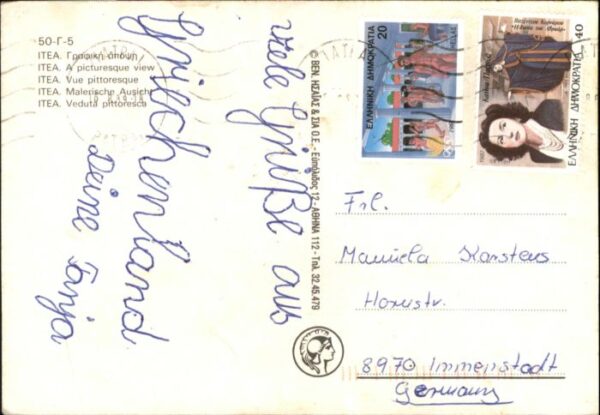 50-Γ-5
ΙΤΕΑ. Γραφική άποψη
ITEA. A picturesque view
ITEA. Vue pittoresque
ITEA. Malerische Ausicht
ITEA. Veduta pittoresca
viele Grüße aus
Griechenland
Deine Tanja
© ΒΕΝ. ΗΣΑΪΑΣ & ΣΙΑ Ο.Ε. - Ευπόλιδος 12 - ΑΘΗΝΑ 112 - Τηλ. 32.45.479
20
ΕΛΛΗΝΙΚΗ ΔΗΜΟΚΡΑΤΙΑ
HELLAS
40
ΕΛΛΗΝΙΚΗ ΔΗΜΟΚΡΑΤΙΑ
Frl.
Manuela Karstens
8970 Immenstadt
Germany